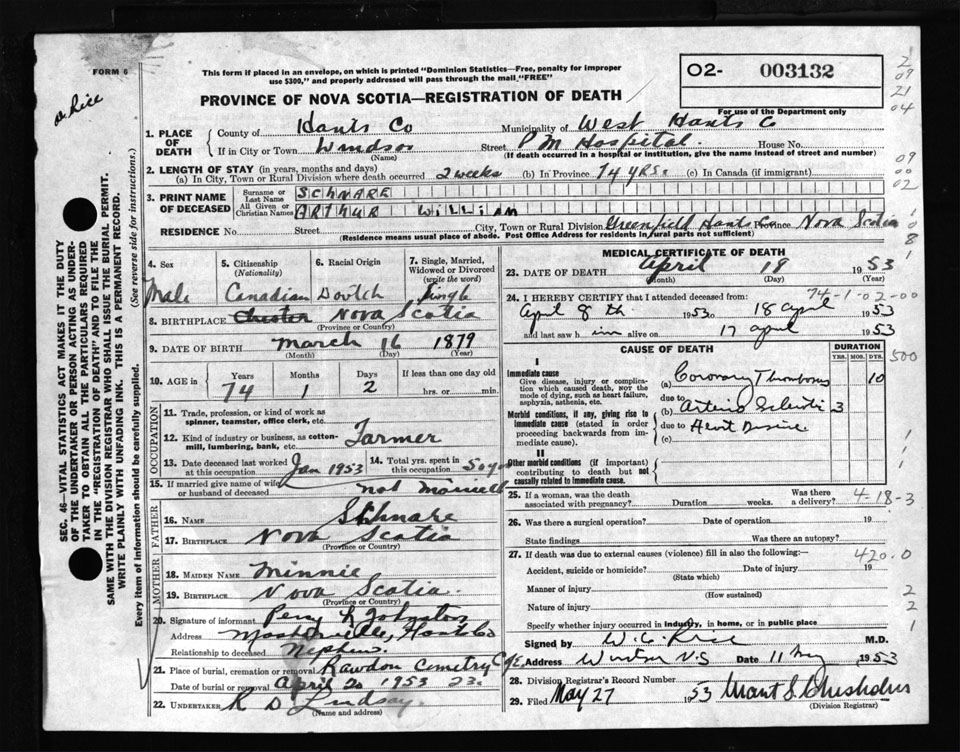 FORM 6
Dr Rice
This form if placed in an envelope, on which is printed "Dominion Statistics—Free, penalty for improper
use $300," and properly addressed will pass through the mail "FREE"
PROVINCE OF NOVA SCOTIA—REGISTRATION OF DEATH
02- 003132
For use of the Department only
2
09
21
04
1. PLACE OF DEATH { County of Hants Co Municipality of West Hants Co
If in City or Town Windsor Street P M Hospital House No.
(Name) (If death occurred in a hospital or institution, give the name instead of street and number)
2. LENGTH OF STAY (in years, months and days)
(a) In City, Town or Rural Division where death occurred 2 weeks (b) In Province 74 yrs. (c) In Canada (if immigrant)
09
00
02
3. PRINT NAME OF DECEASED { Surname or Last Name SCHNARE
All Given or Christian Names ARTHUR WILLIAM
RESIDENCE No. Street City, Town or Rural Division Greenfield Hants Co Province Nova Scotia
(Residence means usual place of abode. Post Office Address for residents in rural parts not sufficient)
1
08
8
1
4. Sex Male
5. Citizenship (Nationality) Canadian
6. Racial Origin Doutch
7. Single, Married, Widowed or Divorced (write the word) Single
8. BIRTHPLACE Chester Nova Scotia
(Province or Country)
9. DATE OF BIRTH March 16 1879
(Month) (Day) (Year)
10. AGE in { Years Months Days If less than one day old
74 1 2 hrs. or min.
OCCUPATION
11. Trade, profession, or kind of work as
spinner, teamster, office clerk, etc.
12. Kind of industry or business, as cotton-
mill, lumbering, bank, etc. Farmer
13. Date deceased last worked at this occupation Jan 1953
14. Total yrs. spent in this occupation 50 yrs
15. If married give name of wife
or husband of deceased not Married
FATHER
16. NAME Schnare
17. BIRTHPLACE Nova Scotia
(Province or Country)
MOTHER
18. MAIDEN NAME Minnie
19. BIRTHPLACE Nova Scotia
(Province or Country)
20. Signature of informant Percy Johnston
Address Mosherville, Hants Co
Relationship to deceased Nephew.
21. Place of burial, cremation or removal Rawdon Cemetry
Date of burial or removal April 20 1953 23.
22. UNDERTAKER R D Lindsay.
(Name and address)
MEDICAL CERTIFICATE OF DEATH
23. DATE OF DEATH April 18 1953
(Month) (Day) (Year)
74-1-02-00
24. I HEREBY CERTIFY that I attended deceased from:
April 8th 1953 to 18 April 1953
and last saw h im alive on 17 April 1953
CAUSE OF DEATH
DURATION
YRS. MOS. DYS.
500
I
Immediate cause
Give disease, injury or complica-
tion which caused death, not the
mode of dying, such as heart failure,
asphyxia, asthenia, etc.
(a) Coronary Thrombosis 10
due to
Morbid conditions, if any, giving rise to
immediate cause (stated in order
proceeding backwards from im-
mediate cause).
(b) Arterio Sclerotic 3
due to Heart Disease
(c)
II
Other morbid conditions (if important)
contributing to death but not
causally related to immediate cause.
25. If a woman, was the death
associated with pregnancy? Duration weeks. Was there a delivery?
4-18-3
26. Was there a surgical operation? Date of operation 19
State findings Was there an autopsy?
27. If death was due to external causes (violence) fill in also the following:—
420.0
Accident, suicide or homicide? Date of injury 19
(State which)
Manner of injury
(How sustained)
Nature of injury
Specify whether injury occurred in industry, in home, or in public place
2
2
1
Signed by W. C. Rice M.D.
Address Windsor N.S Date 11 May 1953
28. Division Registrar's Record Number
29. Filed May 27 1953 Chisholm
(Division Registrar)
SEC. 46—VITAL STATISTICS ACT MAKES IT THE DUTY
OF THE UNDERTAKER OR PERSON ACTING AS UNDER-
TAKER TO OBTAIN ALL THE PARTICULARS REQUIRED
IN THE "REGISTRATION OF DEATH" AND TO FILE THE
SAME WITH THE DIVISION REGISTRAR WHO SHALL ISSUE THE BURIAL PERMIT.
WRITE PLAINLY WITH UNFADING INK. THIS IS A PERMANENT RECORD.
Every item of information should be carefully supplied. (See reverse side for instructions.)